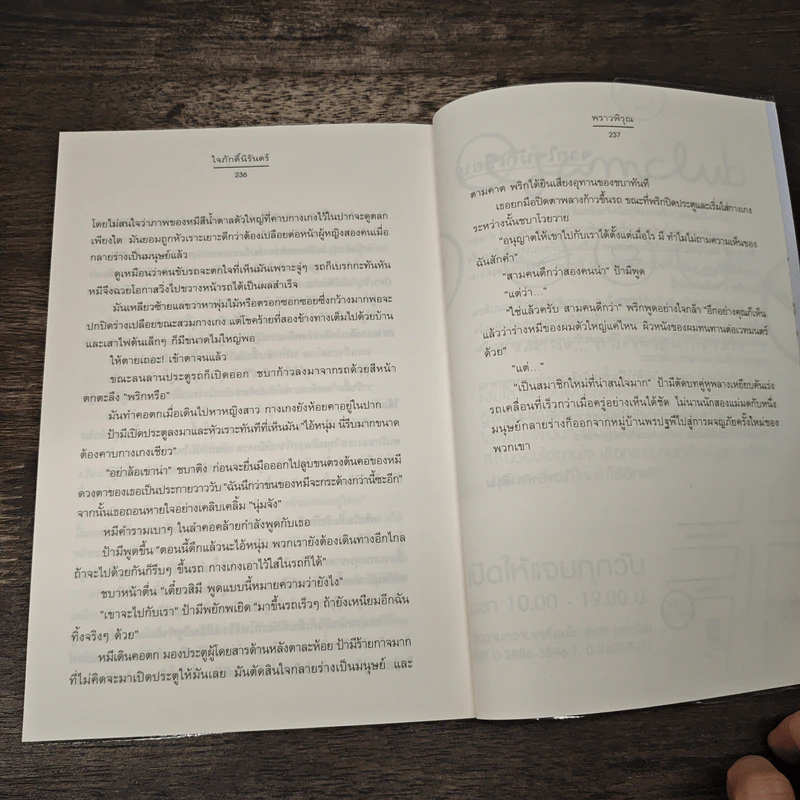 ใจภักดิ์นิรันดร์
236
โดยไม่สนใจว่าภาพของหมีสีน้ำตาลตัวใหญ่ที่คาบกางเกงไว้ในปากจะดูตลก
เพียงใด มันยอมถูกหัวเราะเยาะดีกว่าต้องเปลือยต่อหน้าผู้หญิงสองคนเมื่อ
กลายร่างเป็นมนุษย์แล้ว
ดูเหมือนว่าคนขับรถจะตกใจที่เห็นมันเพราะจู่ๆ รถก็เบรกกะทันหัน
หมีจึงฉวยโอกาสวิ่งไปขวางหน้ารถได้เป็นผลสำเร็จ
มันเหลียวซ้ายแลขวาหาพุ่มไม้หรือตรอกซอกซอยซึ่งกว้างมากพอจะ
ปกปิดร่างเปลือยขณะสวมกางเกง แต่โชคร้ายที่สองข้างทางเต็มไปด้วยบ้าน
และเสาไฟต้นเล็กๆ ก็มีขนาดไม่ใหญ่พอ
ให้ตายเถอะ! เข้าตาจนแล้ว
ขณะลนลานประตูรถก็เปิดออก ชบาก้าวลงมาจากรถด้วยสีหน้า
ตกตะลึง “พริกหรือ”
มันทำคอตกเมื่อเดินไปหาหญิงสาว กางเกงยังห้อยคาอยู่ในปาก
ป้ามีเปิดประตูลงมาและหัวเราะทันทีที่เห็นมัน “ไอ้หนุ่ม นี่รีบมากขนาด
ต้องคาบกางเกงเชียว”
“อย่าล้อเขาน่า” ชบาติง ก่อนจะยื่นมือออกไปลูบขนตรงต้นคอของหมี
ดวงตาของเธอเป็นประกายวาววับ “ฉันนึกว่าขนของหมีจะกระด้างกว่านี้ซะอีก”
จากนั้นเธอถอนหายใจอย่างเคลิบเคลิ้ม “นุ่มจัง”
หมีคำรามเบาๆ ในลำคอคล้ายกำลังพูดกับเธอ
ป้ามีพูดขึ้น “ตอนนี้ดึกแล้วนะไอ้หนุ่ม พวกเรายังต้องเดินทางอีกไกล
ถ้าจะไปด้วยกันก็รีบๆ ขึ้นรถ กางเกงเอาไว้ใส่ในรถก็ได้”
ชบาหน้าตื่น “เดี๋ยวสิมี พูดแบบนี้หมายความว่ายังไง”
“เขาจะไปกับเรา” ป้ามีพยักพเยิด “มาขึ้นรถเร็วๆ ถ้ายังเหนียมอีกฉัน
ทิ้งจริงๆ ด้วย”
หมีเดินคอตก มองประตูผู้โดยสารด้านหลังตาละห้อย ป้ามีร้ายกาจมาก
ที่ไม่คิดจะมาเปิดประตูให้มันเลย มันตัดสินใจกลายร่างเป็นมนุษย์ และ
พราวพิรุณ
237
ตามคาด พริกได้ยินเสียงอุทานของชบาทันที
เธอยกมือปิดตาพลางก้าวขึ้นรถ ขณะที่พริกปิดประตูและเริ่มใส่กางเกง
ระหว่างนั้นชบาโวยวาย
“อนุญาตให้เขาไปกับเราได้ตั้งแต่เมื่อไร มี ทำไมไม่ถามความเห็นของ
ฉันสักคำ”
“สามคนดีกว่าสองคนน่า” ป้ามีพูด
“แต่ว่า...”
“ใช่แล้วครับ สามคนดีกว่า” พริกพูดอย่างใจกล้า “อีกอย่างคุณก็เห็น
แล้วว่าร่างหมีของผมตัวใหญ่แค่ไหน ผิวหนังของผมทนทานต่อเวทมนตร์
ด้วย”
“แต่...”
“เป็นสมาชิกใหม่ที่น่าสนใจมาก” ป้ามีตัดบทคู่หูพลางเหยียบคันเร่ง
รถเคลื่อนที่เร็วกว่าเมื่อครู่อย่างเห็นได้ชัด ไม่นานนักสองแม่มดกับหนึ่ง
มนุษย์กลายร่างก็ออกจากหมู่บ้านพรปฐพีไปสู่การผจญภัยครั้งใหม่ของ
พวกเขา